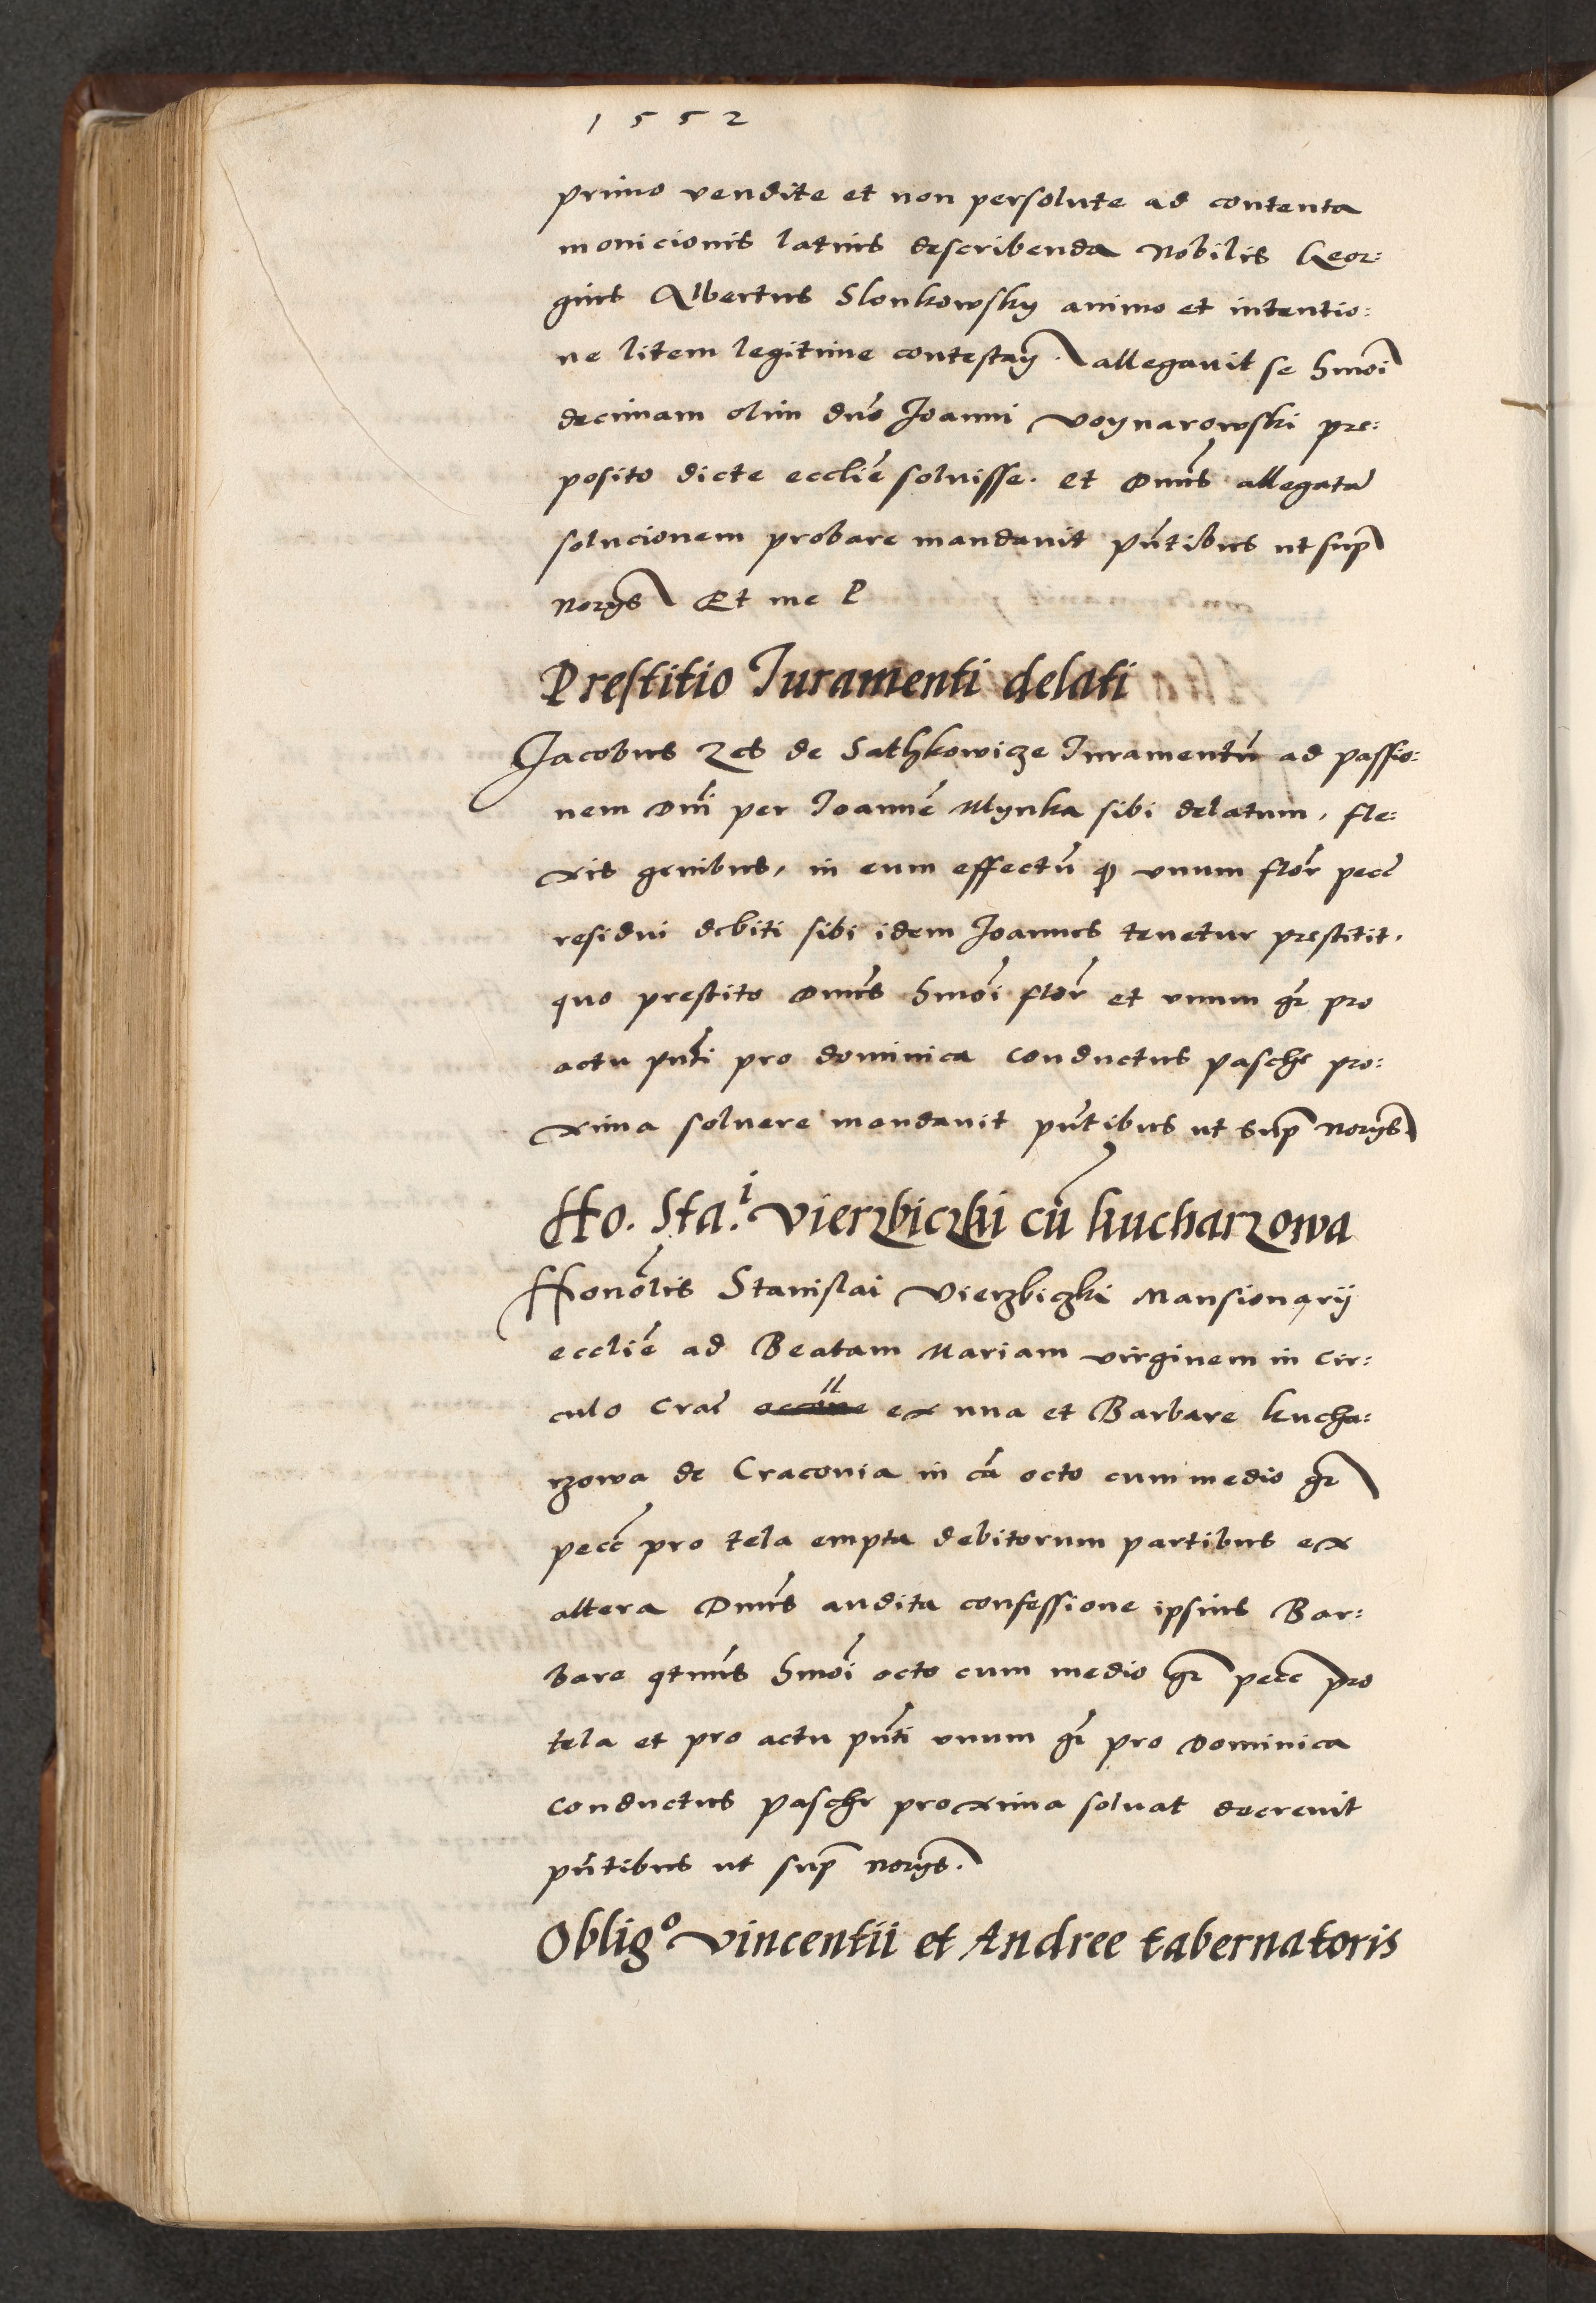 1552
primo vendite et non persolute ad contenta
monicionis latius describenda Nobilis Geor:
gius Albertus Slonkowsky animo et intentio:
ne litem legitime contestaṅ. allegauit se hmoi
decimam olim dno Joanni Voynarowski pre:
posito dicte ecclie soluisse. et Dnus allegata
solucionem probare mandauit pntibus ut sup
norys Et me P
Prestitio Juramenti delati
Jacobus Zes de Sathkowicze Juramentū ad passio:
nem Dni per Joannē Mlynka sibi delatum, fle:
xis genibus, in eum effectū ꝙ vnum flor pecc
residui debiti sibi idem Joannes tenetur prestitit.
quo prestito Dnus hmoi flor et vnum gr pro
actu pnti pro dominica conductus pasche pro:
xima soluere mandauit pntibus ut sup norys
Ho. Sta.i Vierzbiczki cū kucharzowa
Honolis Stanislai Vierzbiczki Mansionarij
ecclie ad Beatam Mariam virginem in Cir:
culo Crac ex una et Barbare kucha:
rzowa de Craconia in ca octo cum medio gr
pecc pro tela empta debitorum partibus ex
altera Dnus audita confessione ipsius Bar:
bare qtnus hmoi octo cum medio gr pecc pro
tela et pro actu pnti vnum gr pro Dominica
conductus pasche proxima soluat decreuit
pntibus ut sup norys.
Oblig.o Vincentii et Andree tabernatoris